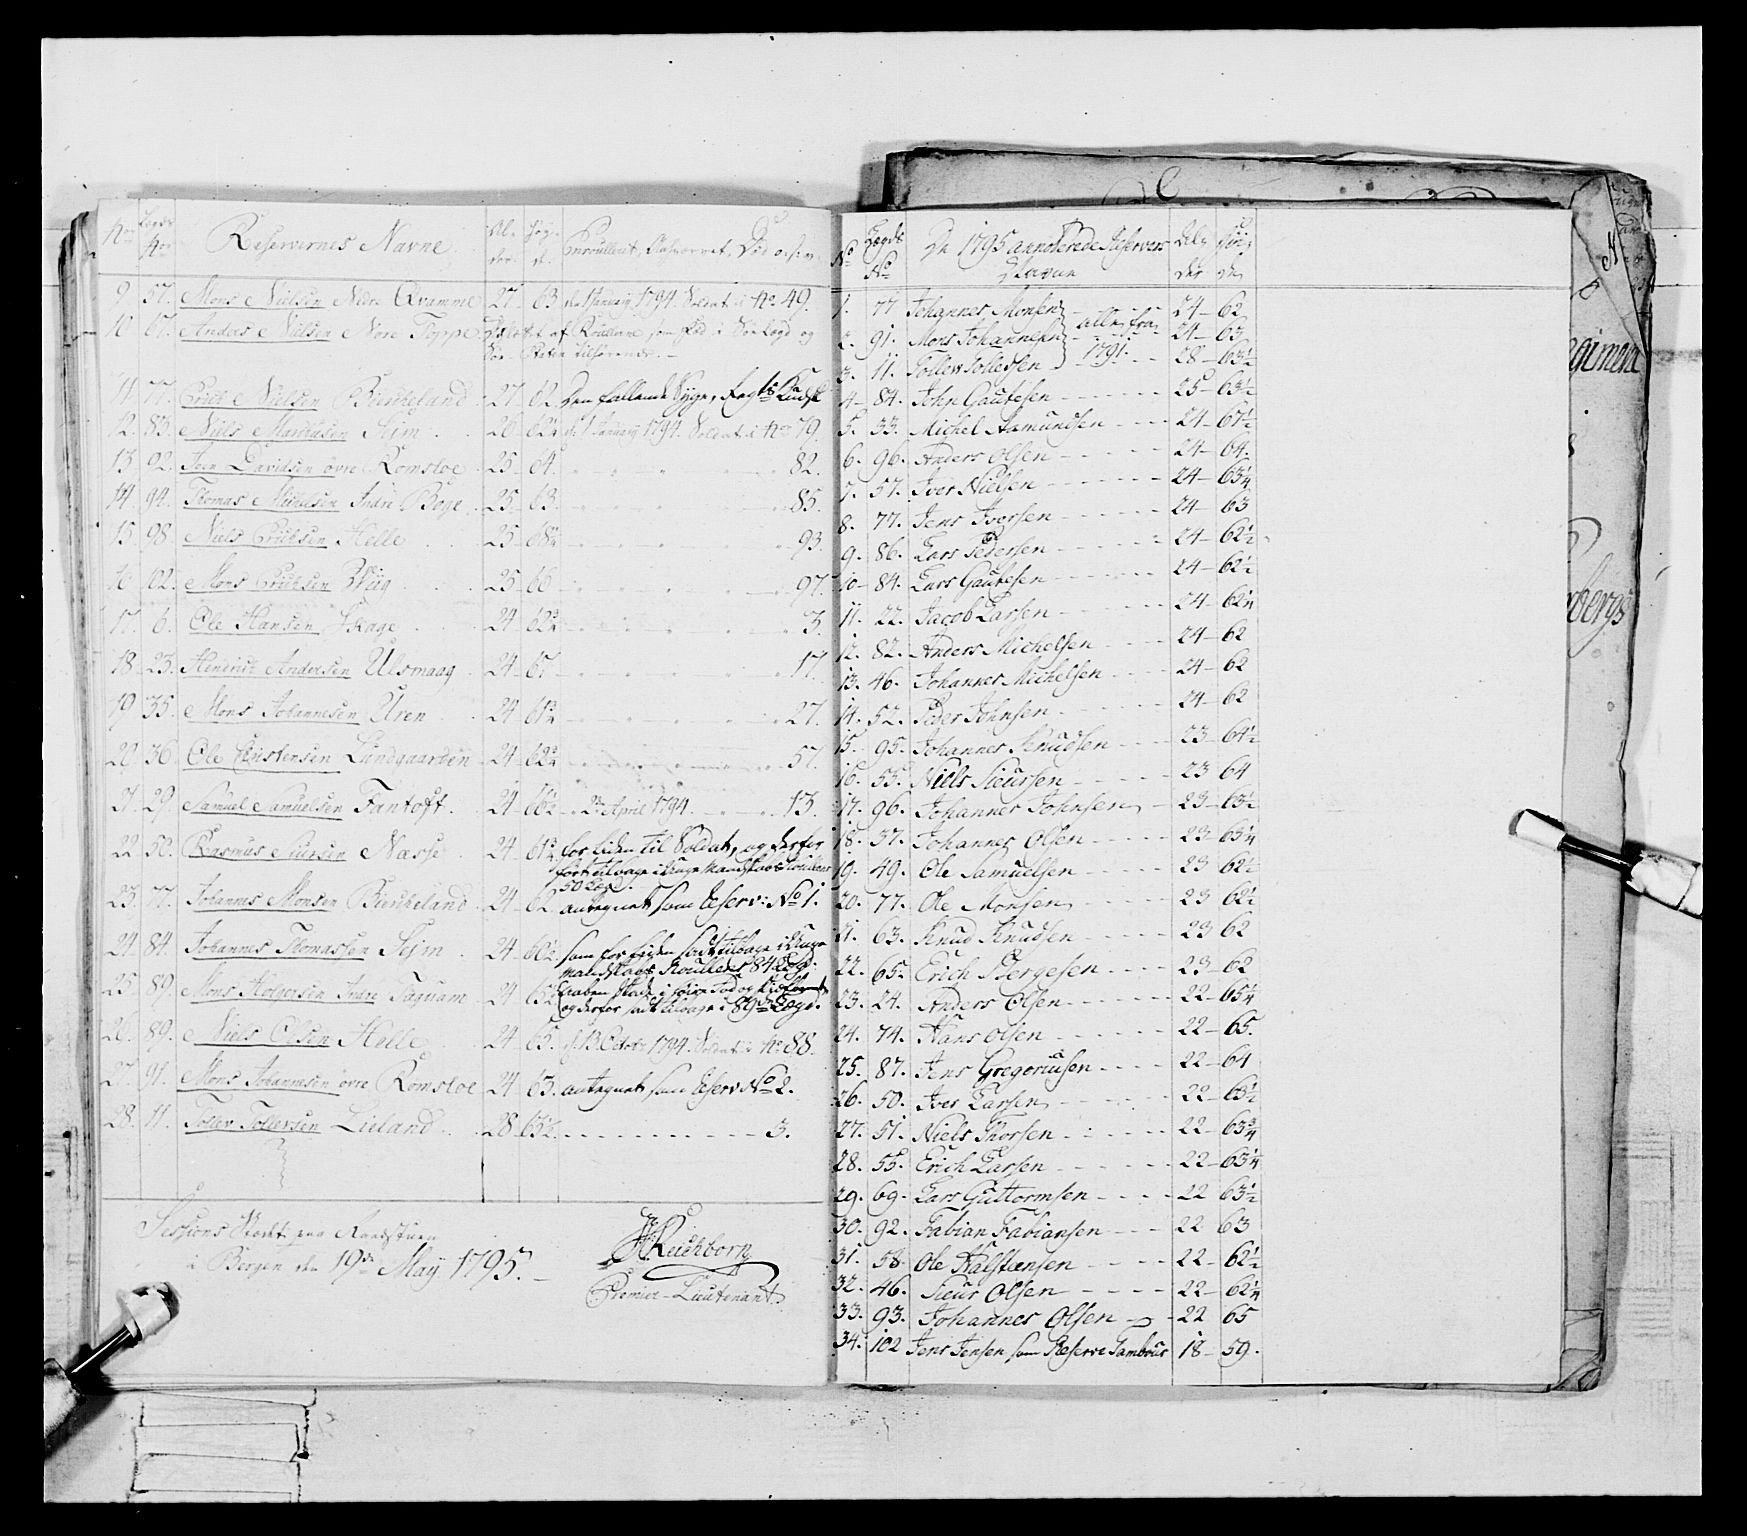 No. Lægds No. Reservernes Navne. Al- der. Høy- de.
9. 57. Mons Nielsen Nedre Qvamme 27. 63. d. 1 January 1794. Soldat i No. 49.
10. 67. Anders Nielsen Nore Toppe
11. 77. Erich Nielsen Birkeland 27. 62. Den fallende Syge,
12. 83. Niels Mathiasen Seim 26. d. 1 January 1794. Soldat i No. 79.
13. 92. Iver Davidsen øvre Romsloe 25. 64. 82.
14. 94. Thomas Michelsen Indre Boge 25. 63. 85.
15. 98. Niels Erichsen Helle 25 93.
16. 102. Mons Erichsen Wiig 25 66 97.
17. 6. Ole Hansen Skage 24 62¾ 3.
18. 23. Hendrich Andersen Ulsmaag 24 67 17.
19. 35. Mons Johannesen Uren 24 61¾ 27.
20. 36. Ole Christensen Lundgaarden 24 62¾ 57.
21. 29. Samuel Samuelsen Fantoft 24 April 1794. 13.
22. 50. Rasmus Siursen Næsse 24 61¾ for liden til Soldat, og derfor
ført tilbage i Unge Mandskabs Roullens
50 Lægd.
23. 77. Johannes Monsen Birkeland 24 62. antegnet som Reserv: No 1.
24. 84. Johannes Thomassen Sejm 24 60½ som for liden sadt tilbage i Unge
Mandskabs Roullens 84 Lægd.
25. 89. Mons Holgersen Indre Taqvam 24
og derfor sadt tilbage i 89de Lægd.
26. 89. Niels Olsen Helle 24 65. d. 13 Octobr 1794. Soldat i No 88.
27. 91. Mons Johannesen øvre Romsloe 24 63. antegnet som Reserv No 2.
28. 11. Tollev Tollevsen Lieland 28 63½ 3.
Sessions Stedet paa Raadstuen
i Bergen den 19de May 1795.
Premier-Lieutenant
No Lægds No De 1795 annoterede Reservers Navne Al- der Høy- de
1. 77 Johannes Monsen 24 - 62
2. 91. Mons Johannesen alle fra 24 - 63
3. 11. Tollev Tollevsen 1791. 28 - 63½
4 - 84. John Gautesen 25 - 63½
5. 33. Michel Aamundsen 24 - 67½
6. 96. Anders Olsen 24 - 64.
7. 57. Iver Nielsen 24 - 63¼
8. 77. Jens Iversen 24 - 63
9. 86. Lars Pedersen 24 - 62½
10 - 84. Lars Gautesen 24 - 62½
11. 22. Jacob Larsen 24 - 62¼
12. 82. Anders Michelsen 24 - 62
13. 46. Johannes Michelsen 24 - 62
14. 52. Peder Johnsen 24 - 62
15. 95. Johannes Knudsen 23 - 64½
16. 55. Niels Siursen 23 64
17. 96. Johannes Johnsen 23 - 63½
18. 37. Johannes Olsen 23 - 63¼
19. 49. Ole Samuelsen 23 62½
20. 77. Ole Monsen 23 62½
21. 63. Knud Knudsen 23 62
22. 65. Erich Børgesen 23 - 62
23. 24. Anders Olsen 22 - 65¼
24. 74. Hans Olsen 22 - 65.
25. 87. Jens Gregoriusen 22 - 64
26. 50. Iver Larsen 22 - 63½
27. 51. Niels Thorsen 22 - 63¾
28. 55. Erich Larsen 22 - 63¼
29. 69. Lars Guttormsen 22 63½
30. 92. Fabian Fabiansen 22 63
31. 58. Ole Halstensen 22 - 62½
32. 46. Siur Olsen 22 - 62¼
33. 93. Johannes Olsen 22 65
34. 102 Jens Jensen som Reserve Tambour 18 - 59.